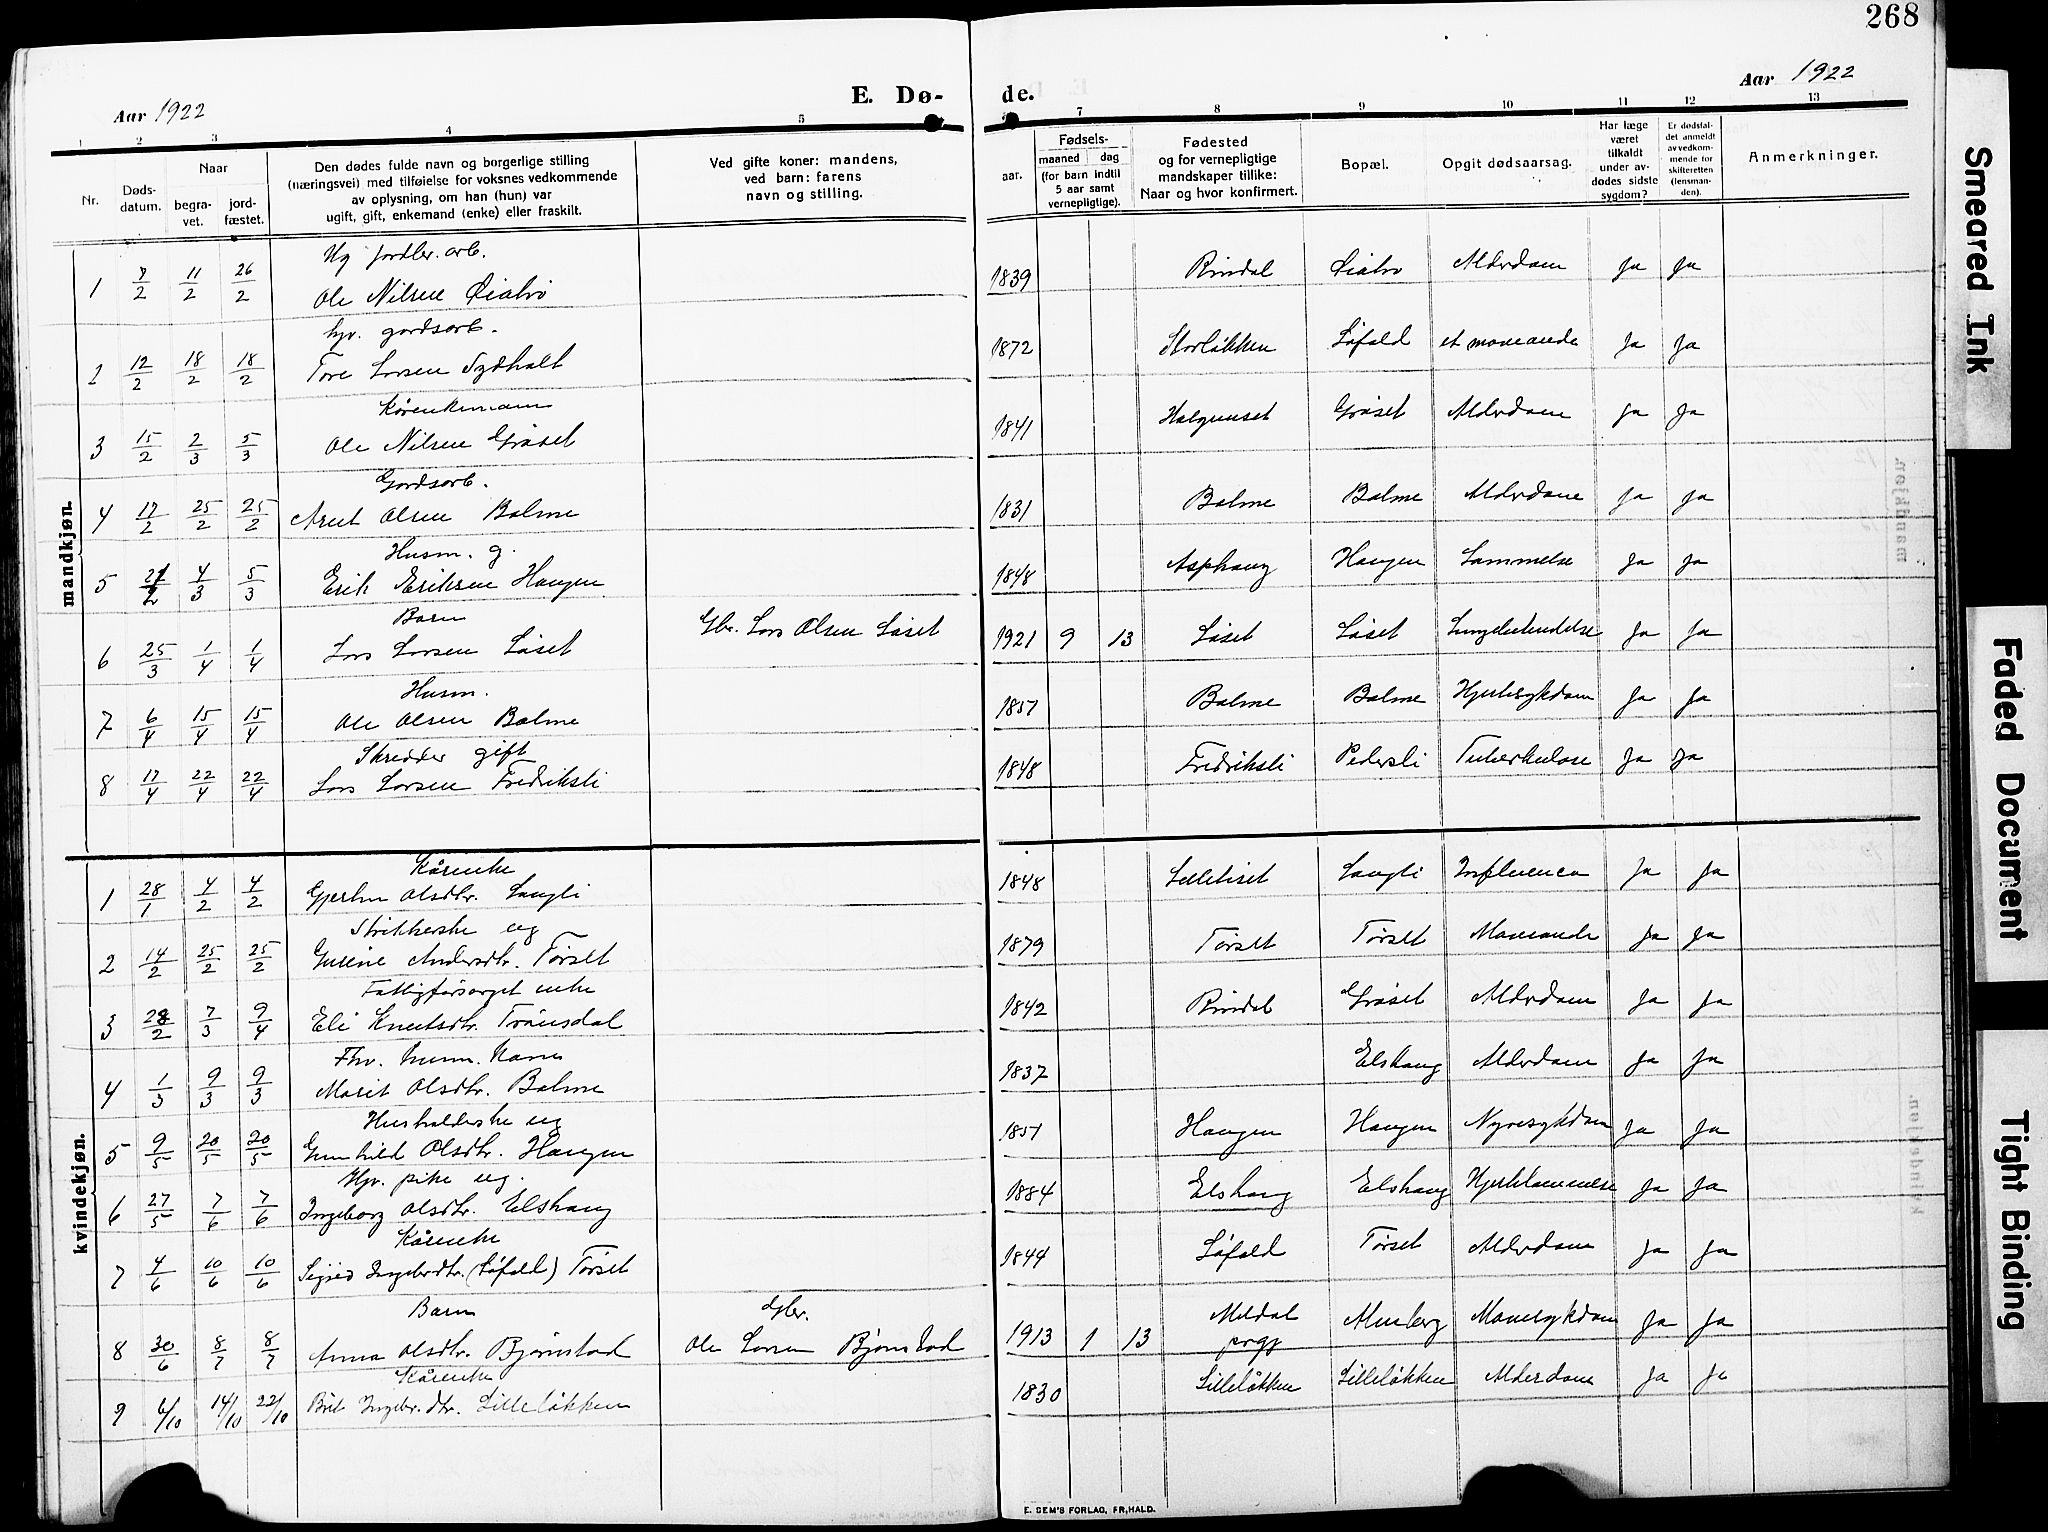 268
Aar 1922
E. Dø-
de.
Aar 1922
1 2 3 4 5 7 8 9 10 11 12 13
Nr.
Døds-
datum.
Naar
begra-
vet.
jord-
fæstet.
Den dødes fulde navn og borgerlige stilling
(næringsvei) med tilføielse for voksnes vedkommende
av oplysning, om han (hun) var
ugift, gift, enkemand (enke) eller fraskilt.
Ved gifte koner: mandens,
ved barn: farens
navn og stilling.
aar.
Fødsels-
maaned dag
(for barn indtil
5 aar samt
vernepligtige).
Fødested
og for vernepligtige
mandskaper tillike:
Naar og hvor konfirmert.
Bopæl.
Opgit dødsaarsag.
Har læge
været
tilkaldt
under av-
dødes sidste
sygdom?
Er dødsfal-
det anmeldt
av vedkom-
mende for
skifteretten
(lensman-
den).
Anmerkninger.
mandkjøn.
Ug jordbr. arb.
1 8/2 11/2 26/2 Ole Nilsen 1839 Rindal Alderdom Ja Ja
gardsarb.
2 12/2 18/2 18/2 Tore Larsen Sydhalt 1872 Storløkken Løfald Ja Ja
Kårenkemann
3 15/2 2/3 5/3 Ole Nilsen Gråset 1841 Halgunset Gråset Alderdom Ja Ja
Gardsarb.
4 17/2 25/2 25/2 Arnt Olsen Bolme 1831 Bolme Bolme Alderdom Ja Ja
Husm. g.
5 4/3 5/3 Erik Eriksen Haugen 1848 Asphaug Haugen Lammelse Ja Ja
Barn
6 25/3 1/4 1/4 Lars Larsen Løset Gbr. Lars Olsen Løset 1921 9 13 Løset Løset Lungebetendelse Ja Ja
Husm.
7 6/4 15/4 15/4 Ole Olsen Bolme 1851 Bolme Bolme Hjertesykdom Ja Ja
Skredder gift
8 17/4 22/4 22/4 Lars Larsen Fredriksli 1848 Fredriksli Pedersli Tuberkulose Ja Ja
kvindekjøn.
Kårenke
1 28/1 4/2 4/2 Gjertru Olsdtr. Langli 1848 Langli Influenca Ja Ja
Strikkerske ug
2 14/2 25/2 25/2 Gurine Andersdtr. Tørset 1879 Tørset Tørset Maveonde Ja Ja
Fattigforsørget enke
3 28/2 7/3 9/4 Eli Knutsdtr. Trønsdal 1842 Rindal Gråset Alderdom Ja Ja
Fhv. husm. kone
4 1/3 9/3 9/3 Marit Olsdtr. Bolme 1837 Elshaug Alderdom Ja Ja
Husholderske ug
5 9/5 20/5 20/5 Gunhild Olsdtr. Haugen 1851 Haugen Haugen Nyresykdom Ja Ja
Hjv. pike ug.
6 27/5 7/6 7/6 Ingeborg Olsdtr. Elshaug 1884 Elshaug Elshaug Hjertelammelse Ja Ja
Kårenke
7 4/6 10/6 10/6 Sigrid Ingebrdtr. (Løfald) Tørset 1844 Løfald Tørset Alderdom Ja Ja
Barn Gbr. Meldal
8 30/6 8/7 8/7 Anna Olsdtr. Bjørnstad Ole Larsen Bjørnstad 1913 1 13 prgj Musberg Mavesykdom Ja Ja
Kårenke
9 6/10 14/10 22/10 Brit Ingebr.dtr. Lilleløkken 1830 Lilleløkken Lilleløkken Alderdom Ja Ja
E. SEM'S FORLAG, FR,HALD.
Smeared Ink
Faded Document
Tight Binding